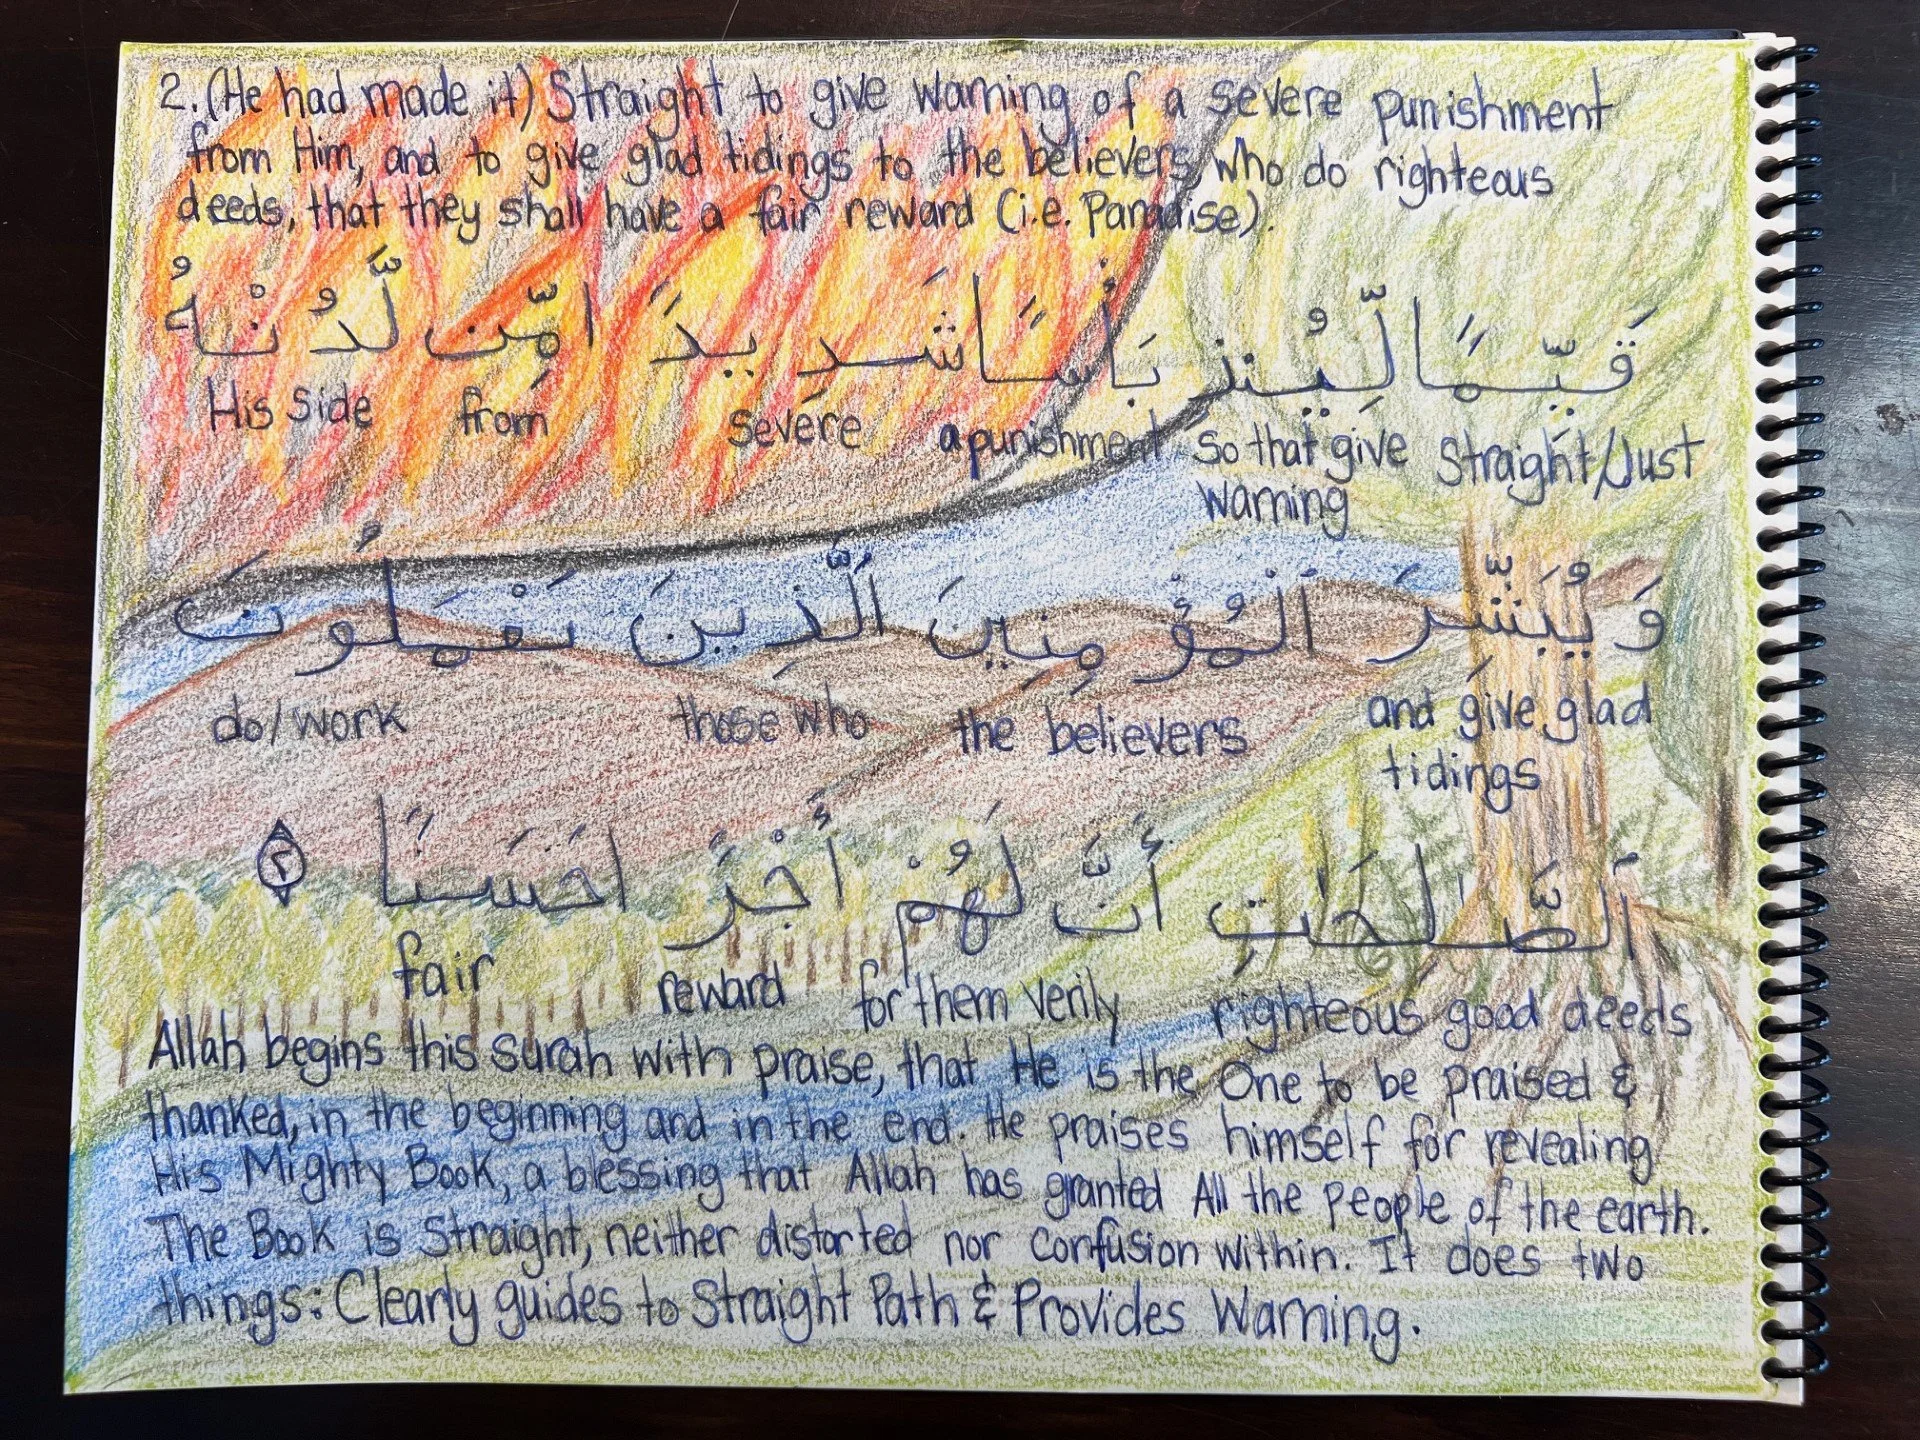 2. (He had made it) Straight to give warning of a severe punishment
from Him, and to give glad tidings to the believers, who do righteous
deeds, that they shall have a fair reward (i.e. Paradise).
قَيِّمًا لِّيُنذِرَ بَأْسًا شَدِيدًا مِّن لَّدُنْهُ
Straight/Just so that give a punishment severe from His side
warning
وَ يُبَشِّرَ ٱلْمُؤْمِنِينَ ٱلَّذِينَ يَعْمَلُونَ
and give glad the believers those who do/work
tidings
ٱلصَّٰلِحَٰتِ أَنَّ لَهُمْ أَجْرًا حَسَنًا ٢
righteous good deeds verily for them reward fair
Allah begins this surah with praise, that He is the One to be praised &
thanked, in the beginning and in the end. He praises himself for revealing
His Mighty Book, a blessing that Allah has granted All the people of the earth.
The Book is Straight, neither distorted nor confusion within. It does two
things: Clearly guides to Straight Path & Provides Warning.